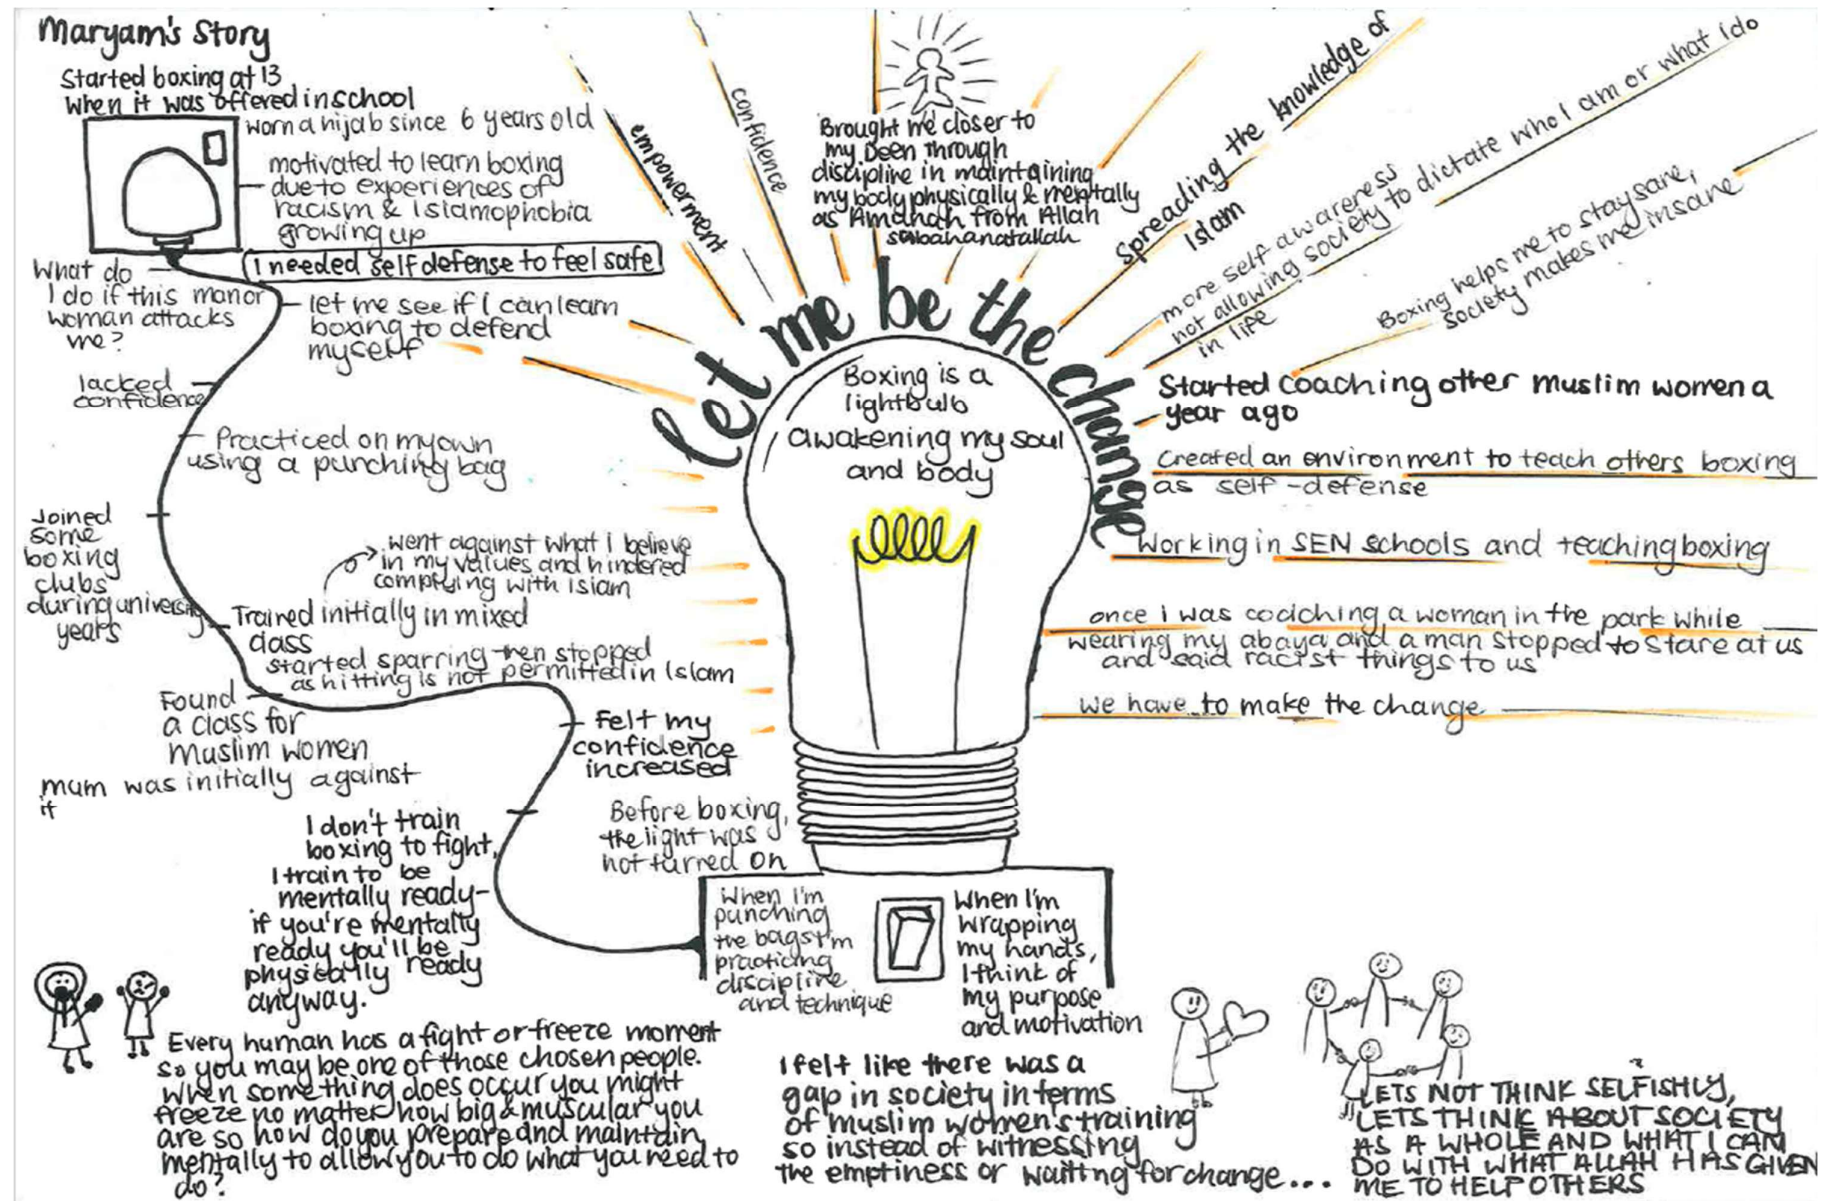 Maryam's Story
Started boxing at 13
when it was offered in school
worn a hijab since 6 years old
motivated to learn boxing
due to experiences of
racism & Islamophobia
growing up
I needed self defense to feel safe
What do
I do if this man or
woman attacks
me?
let me see if I can learn
boxing to defend
myself
lacked
confidence
Practiced on my own
using a punching bag
Joined
some
boxing
clubs
during university
years
went against what I believe
in my values and hindered
complying with Islam
Trained initially in mixed
class
started sparring then stopped
as hitting is not permitted in Islam
Found
a class for
Muslim women
mum was initially against
it
Felt my
confidence
increased
I don't train
boxing to fight,
I train to be
mentally ready-
if you're mentally
ready you'll be
physically ready
anyway.
Before boxing,
the light was
not turned on
When I'm
punching
the bags I'm
practicing
discipline
and technique
When I'm
wrapping
my hands,
I think of
my purpose
and motivation
Boxing is a
lightbulb
awakening my soul
and body
let me be the change
empowerment
confidence
Brought me closer to
my Deen through
discipline in maintaining
my body physically & mentally
as Amanah from Allah
subahanatallah
spreading the knowledge of
Islam
more self awareness
not allowing society to dictate who I am or what I do
in life
Boxing helps me to stay sane,
society makes me insane
Started coaching other muslim women a
year ago
Created an environment to teach others boxing
as self-defense
Working in SEN schools and teaching boxing
once I was coaching a woman in the park while
wearing my abaya and a man stopped to stare at us
and said racist things to us
we have to make the change
Every human has a fight or freeze moment
so you may be one of those chosen people.
When something does occur you might
freeze no matter how big & muscular you
are so how do you prepare and maintain
mentally to allow you to do what you need to
do?
I felt like there was a
gap in society in terms
of muslim women's training
so instead of witnessing
the emptiness or waiting for change...
LETS NOT THINK SELFISHLY,
LETS THINK ABOUT SOCIETY
AS A WHOLE AND WHAT I CAN
DO WITH WHAT ALLAH HAS GIVEN
ME TO HELP OTHERS